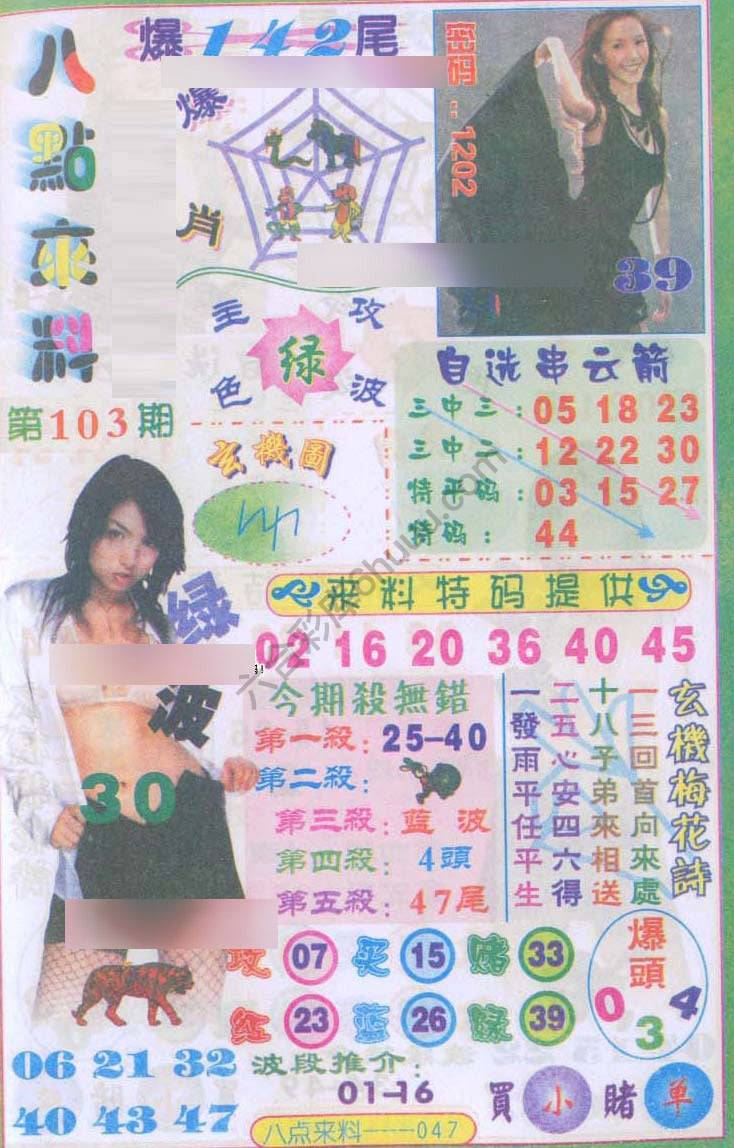 八點來料
第103期
爆142尾
爆肖
密码:1202
39
主攻
绿
色波
自选串云箭
三中三:05 18 23
三中二:12 22 30
特平码:03 15 27
特码:44
玄機圖
来料特码提供
02 16 20 36 40 45
绿波
30
今期殺無錯
第一殺:25-40
第二殺:
第三殺:蓝波
第四殺:4頭
第五殺:47尾
玄機梅花詩
一三回首向來處
十八子弟來相送
二五心安四六得
一發雨平任平生
攻 07 买 15 赌 33
红 23 蓝 26 绿 39
爆頭
0 3 4
06 21 32
40 43 47
波段推介:
01-16
買小賭单
八点来料----047